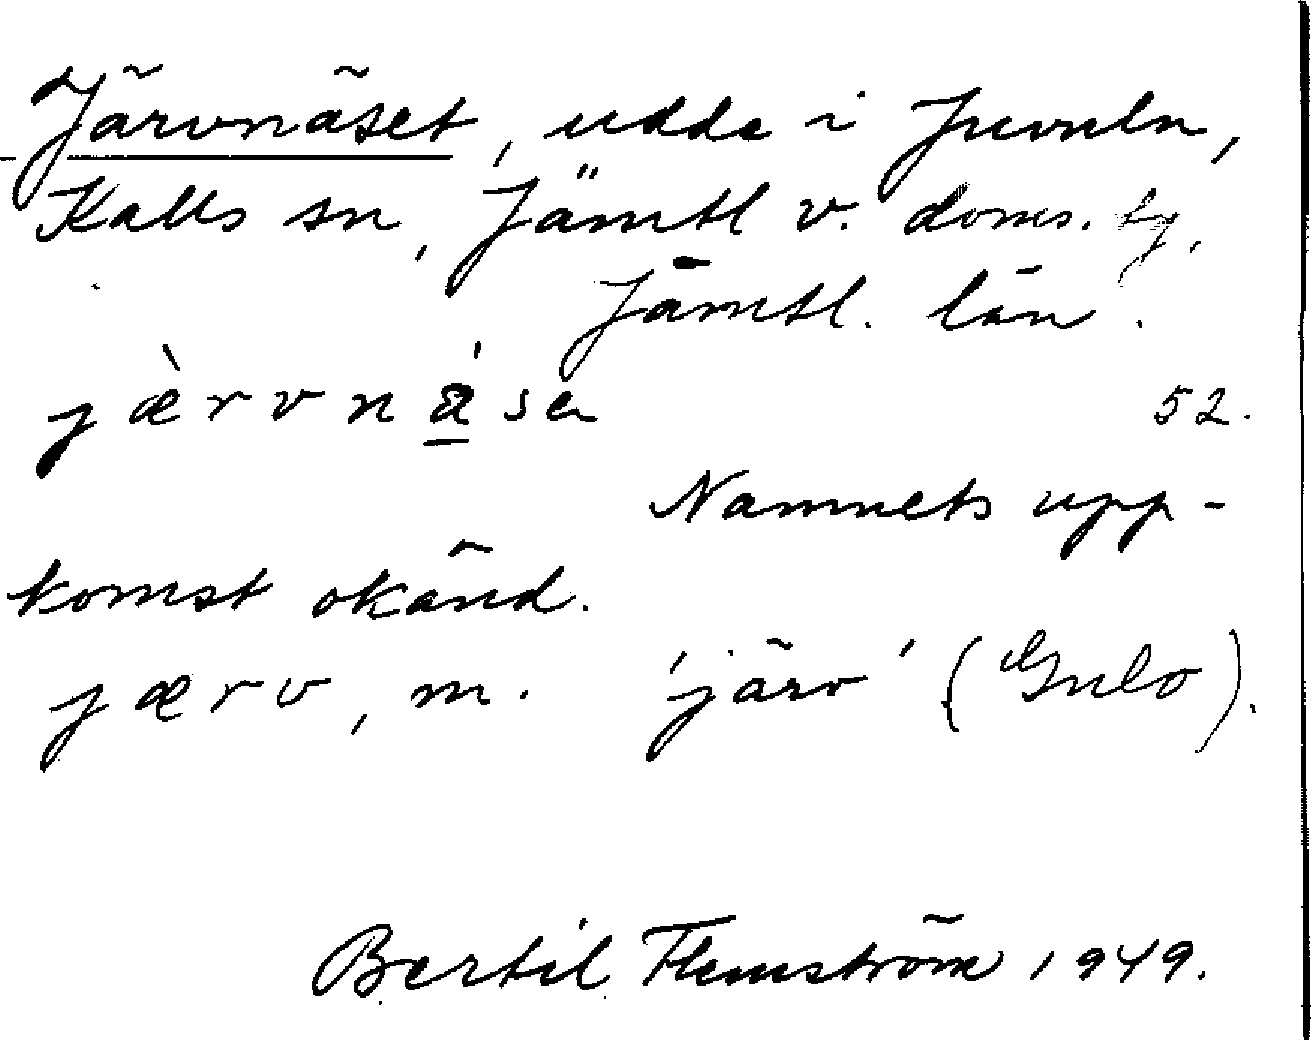 Järvnäset, udde i Juvuln,
Kalls sn, Jämtl v. doms.
Jämtl. län.
jæ̀rvná̱sa
52.
Namnets upp-
komst okänd.
jærv, m. 'järv' (Gulo).
Bertil Flemström 1949.